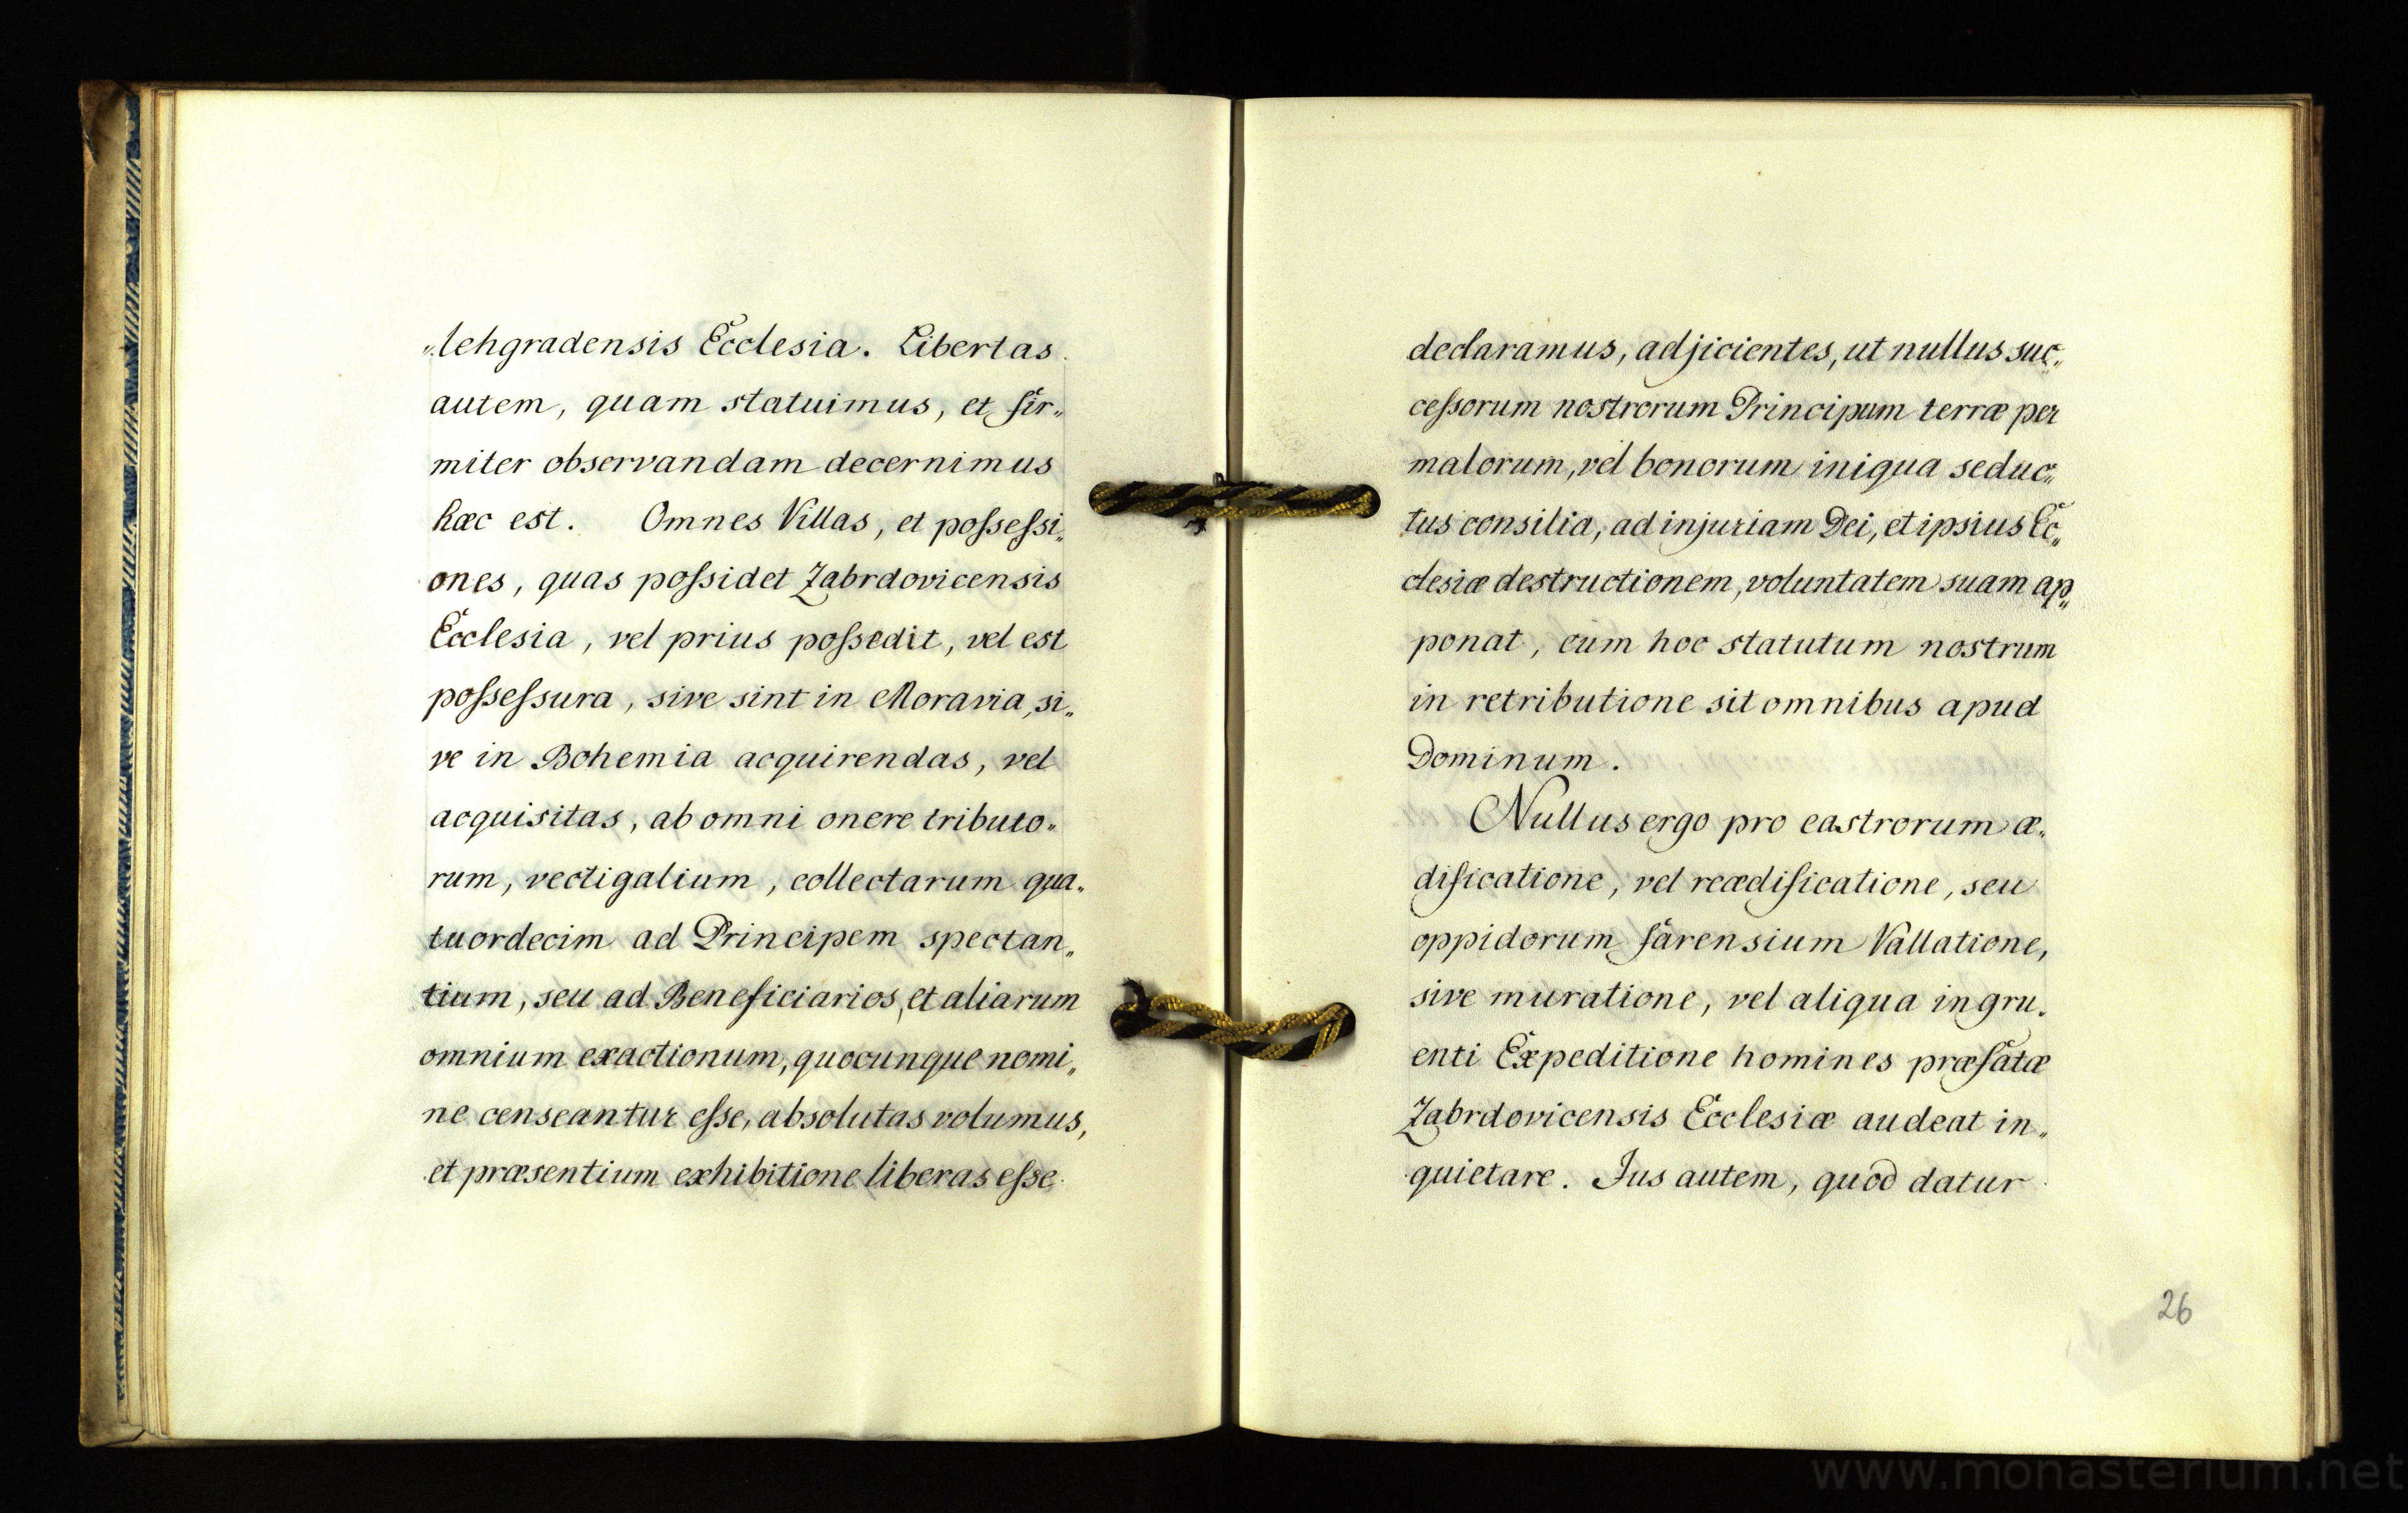 „lehgradensis Ecclesia. Libertas
autem, quam statuimus, et fir„
miter observandam decernimus
hæc est. Omnes Villas, et poſseſsi„
ones, quas poſsidet Zabrdovicensis
Ecclesia, vel prius poſsedit, vel est
poſseſsura, sive sint in Moravia, si„
ve in Bohemia acquirendas, vel
acquisitas, ab omni onere tributo„
rum, vectigalium, collectarum qua„
tuordecim ad Principem spectan„
tium, seu ad Beneficiarios, et aliarum
omnium exactionum, quocunque nomi„
ne censeantur eſse, absolutas volumus,
et præsentium exhibitione liberas eſse
declaramus, adjicientes, ut nullus suc„
ceſsorum nostrorum Principum terræ per
malorum, vel bonorum iniqua seduc„
tus consilia, ad injuriam Dei, et ipsius Ec„
clesiæ destructionem, voluntatem suam ap„
ponat, cum hoc statutum nostrum
in retributione sit omnibus apud
Dominum.
Nullus ergo pro castrorum æ„
dificatione, vel reædificatione, seu
oppidorum farensium Vallatione,
sive muratione, vel aliqua ingru„
enti Expeditione homines præfatæ
Zabrdovicensis Ecclesiæ audeat in„
quietare. Jus autem, quod datur
26
www.monasterium.net